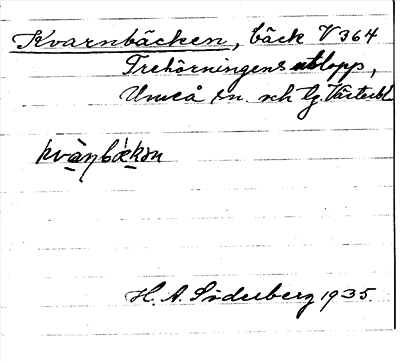 Kvarnbäcken, bäck V 364
Trehörningens utlopp,
Umeå sn. och lg. Västerbl.
H. A. Söderberg 1935.